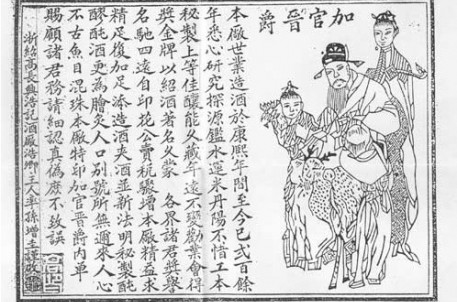 加官晉爵
本廠世業造酒於康熙年間至今已弍百餘
年悉心研究探源鑑水運米丹陽不惜工本
秘製上等佳釀能久藏年遠不變勸業會得
獎金牌以紹酒著名久蒙 各界諸君獎譽
名馳四遠自印花公賣稅驟增本廠精益求
精足復加足添造酒夾酒並新法明秘製
酡酒更為膾炙人口別號所無邇來人心
不古魚目混珠本廠特印加官晉爵內單
賜顧諸君務請細認真偽庶不致誤
浙紹高長興浩記酒廠浩卿主人率孫增圭謹啟